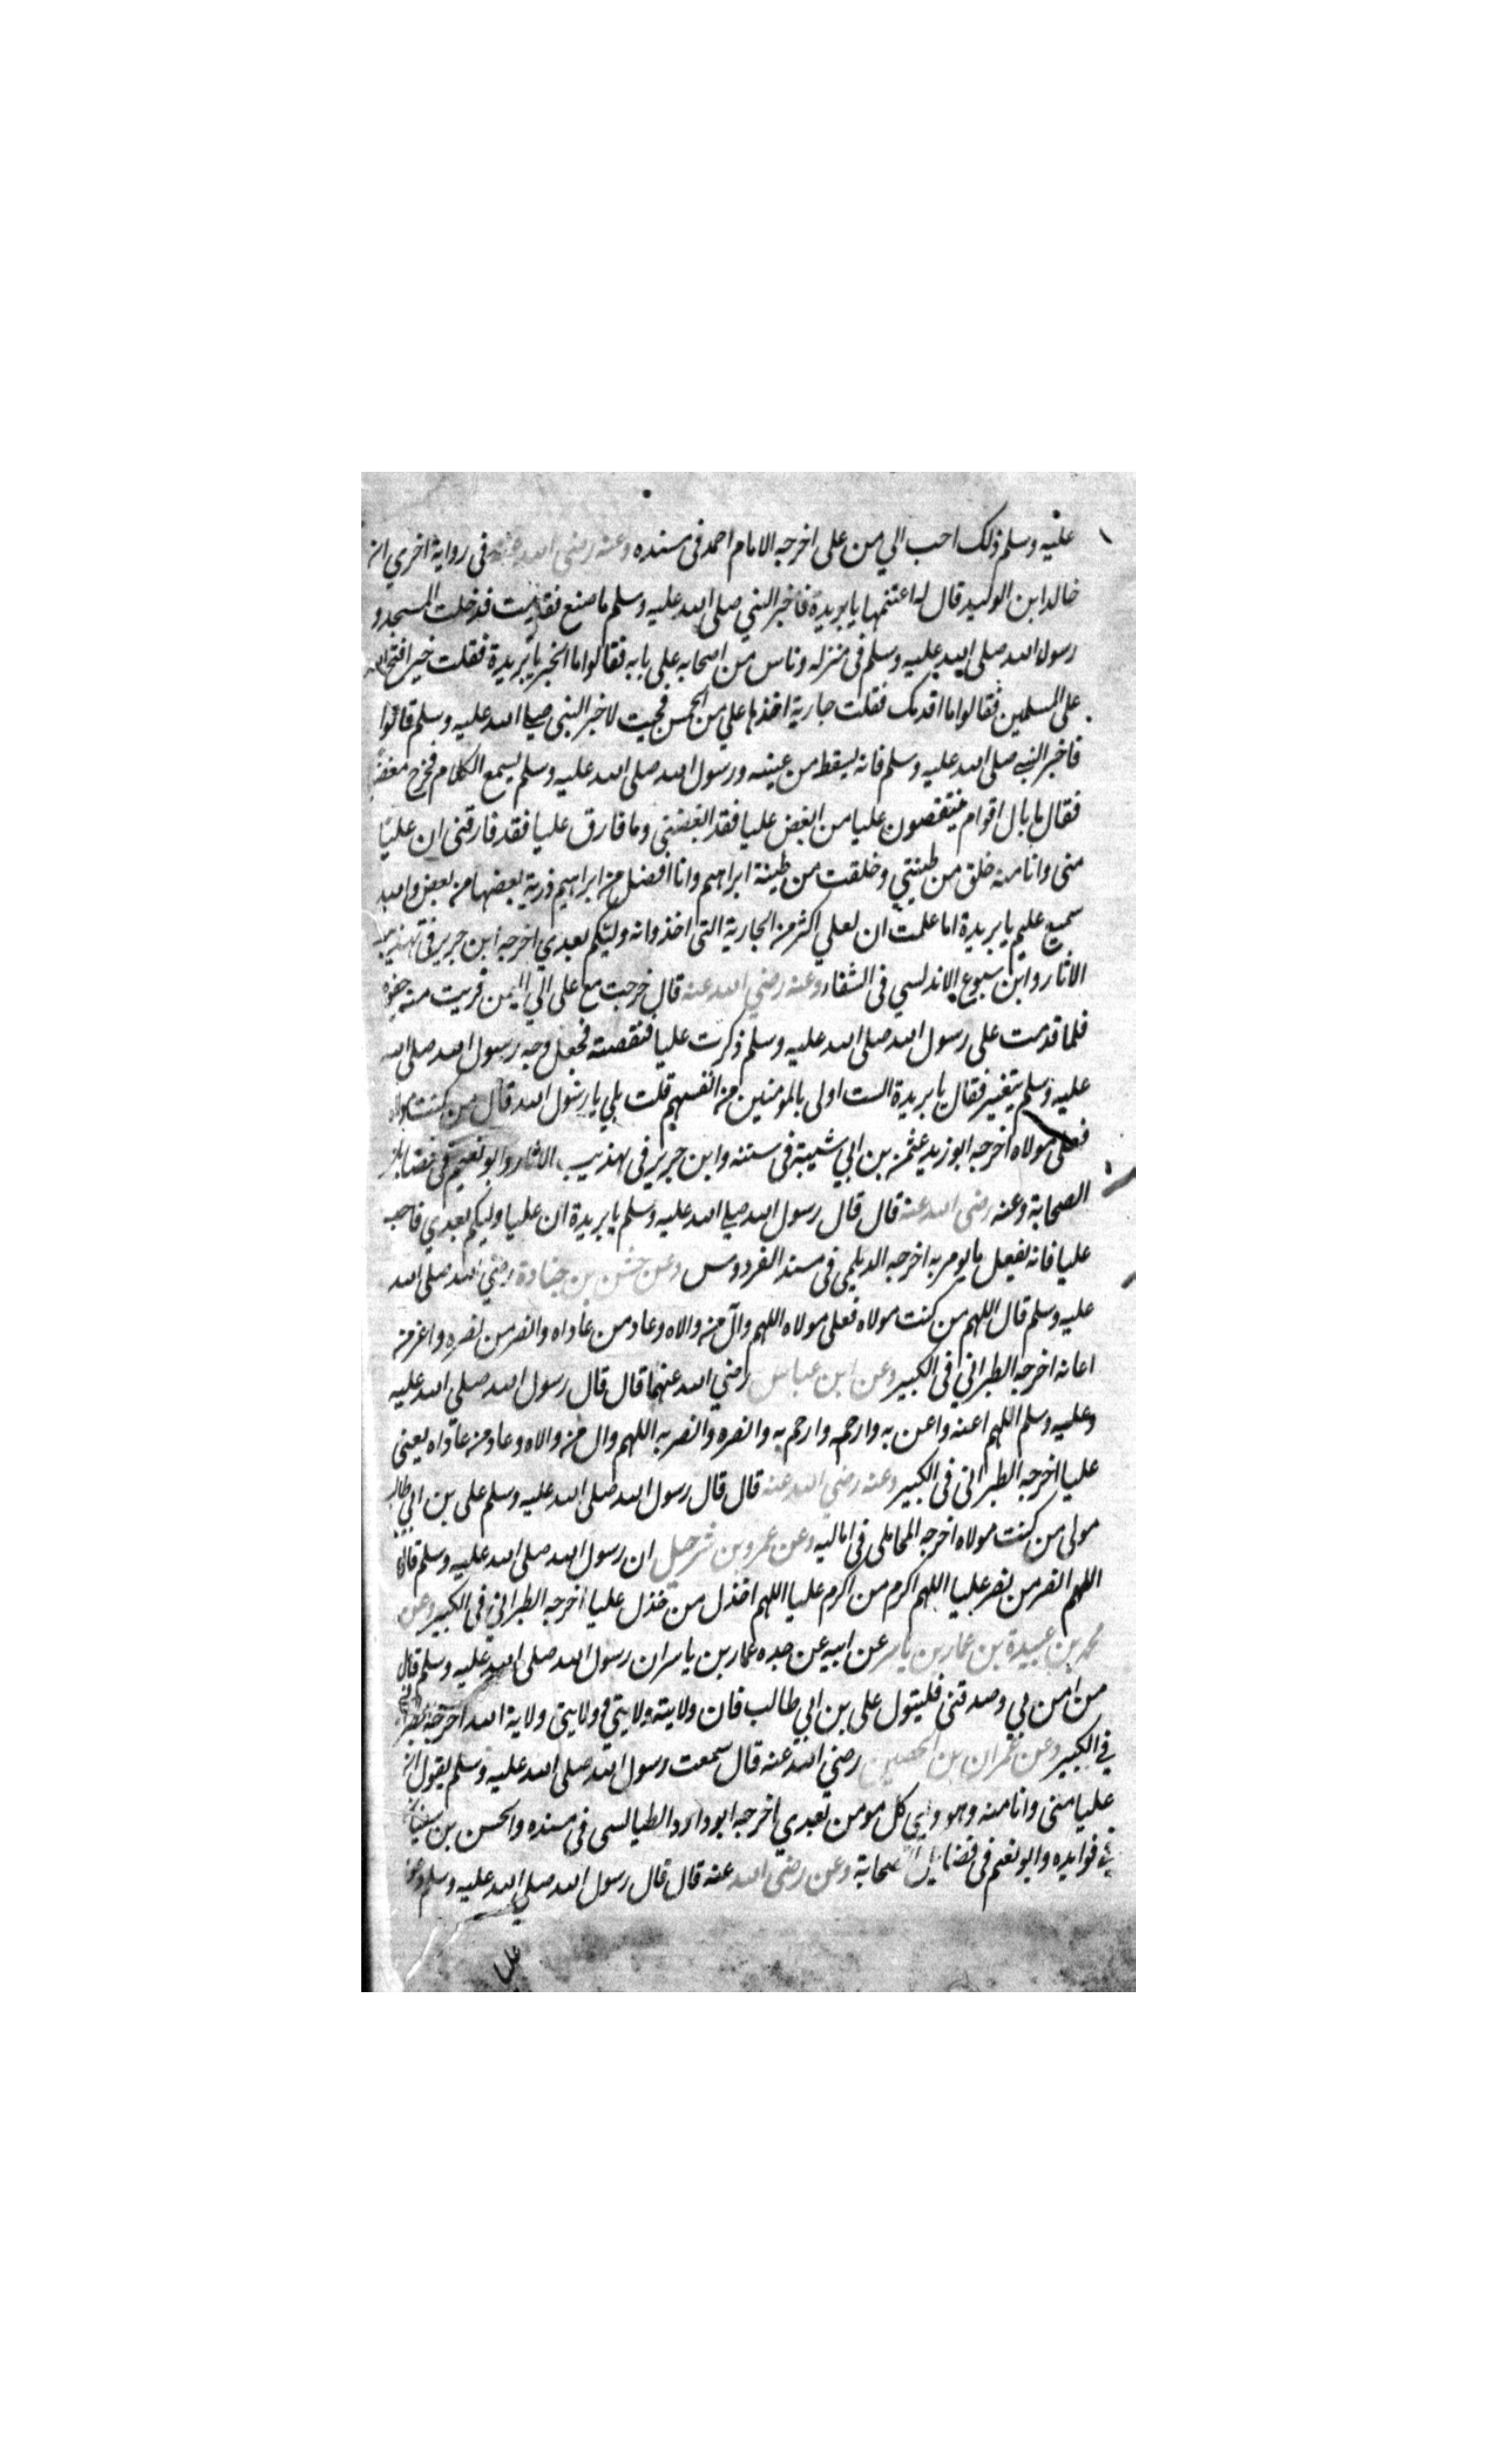 عليه وسلم ذلك احب الي من على اخرجه الامام احمد فى مسنده وعنه رضى الله عنه فى رواية اخري ان
خالد ابن الوليد قال له اغتنمها يا بريدة فاخبر النبي صلى الله عليه وسلم ما صنع فقدمت فدخلت المسجد و
رسول الله صلى الله عليه وسلم فى منزله وناس من اصحابه على بابه فقالوا ما الخبر يا بريدة فقلت خير افتح الله
على المسلمين فقالوا ما اقدمك فقلت جارية اخذها علي من الخمس فجيت لاخبر النبى صلى الله عليه وسلم قالوا
فاخبر النبي صلى الله عليه وسلم فانه يسقط من عينيه ورسول الله صلى الله عليه وسلم يسمع الكلام فخرج مغضبا
فقال ما بال اقوام ينتقصون عليا من ابغض عليا فقد ابغضنى وما فارق عليا فقد فارقنى ان عليا
منى وانا منه خلق من طينتي وخلقت من طينة ابراهيم وانا افضل من ابراهيم ذرية بعضها من بعض والله
سميع عليم يا بريدة اما علمت ان لعلي اكثر من الجارية التى اخذ وانه وليكم بعدي اخرجه ابن جرير فى تهذيب
الاثار وابن سبوع الاندلسي فى الشفاء وعنه رضي الله عنه قال خرجت مع على الي اليمن فريت منه جفوة
فلما قدمت على رسول الله صلى الله عليه وسلم ذكرت عليا فنقصته فجعل وجه رسول الله صلى الله
عليه وسلم يتغير فقال يا بريدة الست اولى بالمومنين من انفسهم قلت بلي يا رسول الله قال من كنت مولاه
فعلى مولاه اخرجه ابو زيد عثمن بن ابي شيبة فى سننه وابن جرير فى تهذيب الاثار وابو نعيم فى فضايل
الصحابة وعنه رضى الله عنه قال قال رسول الله صلى الله عليه وسلم يا بريدة ان عليا وليكم بعدي فاحب
عليا فانه يفعل ما يومر به اخرجه الديلمى فى مسند الفردوس وعن حبشى بن جنادة رضي الله صلى الله
عليه وسلم قال اللهم من كنت مولاه فعلى مولاه اللهم وآل من والاه وعاد من عاداه وانصر من نصره واعن من
اعانه اخرجه الطبراني فى الكبير وعن ابن عباس رضي الله عنهما قال قال رسول الله صلى الله عليه
وعليه وسلم اللهم اعنه واعن به وارحمه وارحم به وانصره وانصر به اللهم وال من والاه وعاد من عاداه يعنى
عليا اخرجه الطبرانى فى الكبير وعنه رضي الله عنه قال قال رسول الله صلى الله عليه وسلم على بن ابي طالب
مولى من كنت مولاه اخرجه المحاملى فى اماليه وعن عمرو بن شرحبيل ان رسول الله صلى الله عليه وسلم قال
اللهم انصر من نصر عليا اللهم اكرم من اكرم عليا اللهم اخذل من خذل عليا اخرجه الطبرانى فى الكبير وعن
محمد بن عبيدة بن عمار بن ياسر عن ابيه عن جده عمار بن ياسر ان رسول الله صلى الله عليه وسلم قال
من امن بي وصدقنى فليتول على بن ابي طالب فان ولايته ولايتي وولايتى ولاية الله اخرجه الطبرانى
في الكبير وعن عمران بن الحصين رضي الله عنه قال سمعت رسول الله صلى الله عليه وسلم يقول ان
عليا منى وانا منه وهو ولي كل مومن بعدي اخرجه ابو داود الطيالسى فى مسنده والحسن بن سفيان
في فوايده وابو نعيم فى فضايل الصحابة وعن رضى الله عنه قال قال رسول الله صلي الله عليه وسلم دعوا
عليا